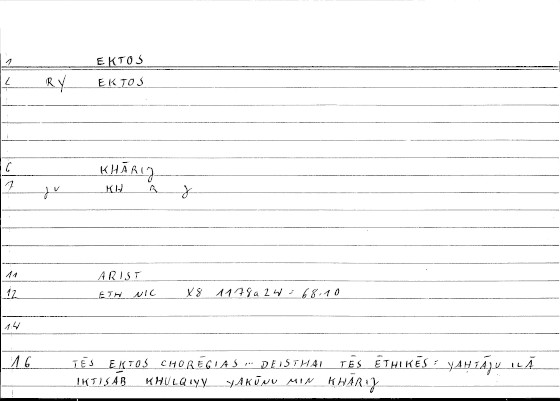 1 EKTOS
2 RY EKTOS
6 KHĀRIJ
7 JV KH R J
11 ARIST
12 ETH NIC X8 1178a24 = 68.10
14
16 TĒS EKTOS CHORĒGIAS ... DEISTHAI TĒS ĒTHIKĒS = YAHTĀJU ILĀ
IKTISĀB KHULQIYY YAKŪNU MIN KHĀRIJ